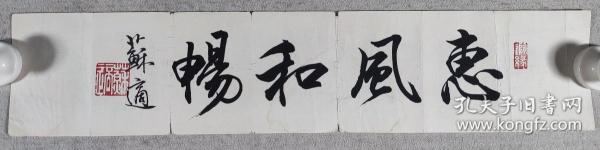 惠風和暢
蘇適
孔夫子旧书网
www.kongfz.com